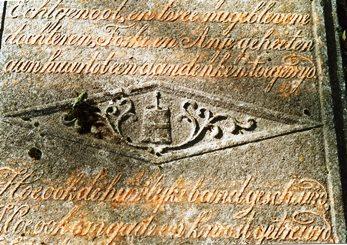 Echtgenoot, en twee nageblevene
dochteren, Fokje en Antje geheeten
aan hunn tot een aandenken toegewyd
Hoe ook de huwlyks band gescheurd
Hoe ook om gade en kroost getreurd